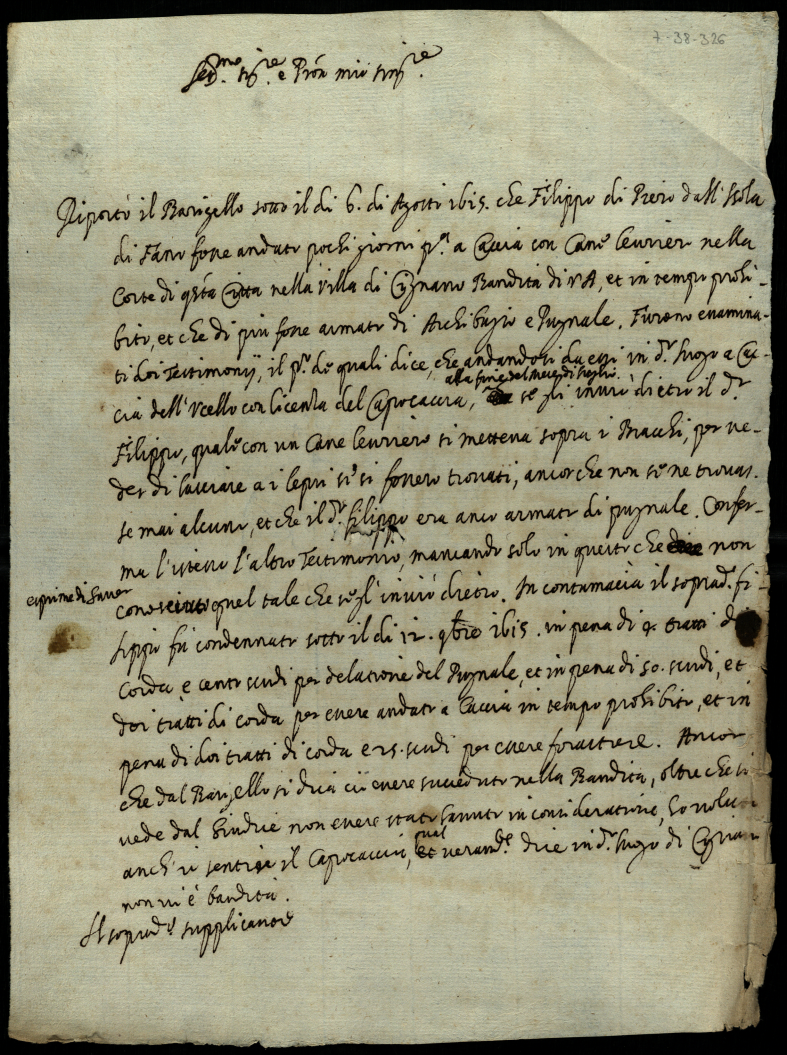 7-38-326
Ser.mo Sig.re e Pron mio Sing.re
Riportò il Barigello sotto il di 6. di Agosti 1615. che Filippo di Piero dall'Isola
di Fano fosse andato pochi giorni p.a a Caccia con Cane levriero nella
Corte di q.sta Citta nella villa di Cignano Bandita di V.A, et in tempo prohi-
bito, et che di più fosse armato di Archibugio e Pugnale. Furono examina-
ti doi Testimonij, il p.o de quali dice, che andandosi da essi in d.o luogo a Cac-
alla fine del mese di luglio
cia dell'Ucello con licenza del Capocaccia, se gli inviò dietro il d.o
Filippo, quale con un Cane levriero si metteva sopra i Macchi, per ve-
der di lasciare a i lepri se si fossero trovati, ancorche non se ne trovas-
se mai alcuno, et che il d.o filippo era anco armato di pugnale. Confer-
ma l'istesso l'altro Testimonio, mancando solo in questo che non
esprime di haver
conosciuto quel tale che se gl'inviò dietro. In contumacia il soprad.o fi-
lippo fu condennato sotto il di 12. 9bre 1615. in pena di 4 tratti di
Corda e cento scudi per delatione del Pugnale, et in pena di 50. scudi, et
doi tratti di corda per essere andato a Caccia in tempo prohibito, et in
pena di doi tratti di corda e 25. scudi per essere forastiere. Ancor
che dal Barigello si dica ciò essere succeduto nella Bandita, oltre che si
vede dal Giudice non essere stato havuto in consideratione, ho voluto
anch'io sentire il Capocaccia, qual dice in d.o luogo di Cignano
non vi è bandita.
Il soprad.o supplicante